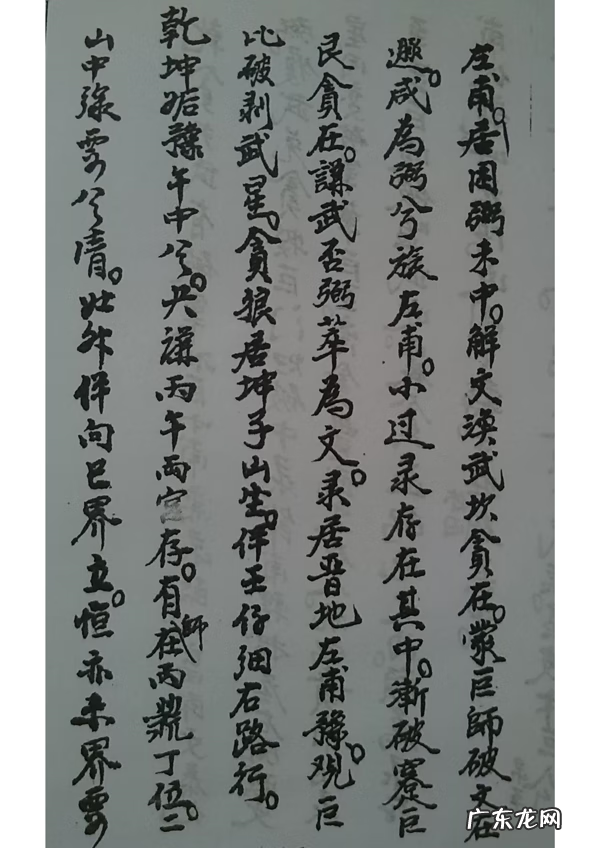 左甫。居困弼未中。解文渙武坎貪在。蒙巨師破文在
遯。咸為弼兮旅左甫。小过录存在其中。漸破蹇巨
艮貪在。謙武否弼萃為文。录居晋地左甫豫。观巨
比破剥武星。貪狼居坤子山坐。伴王仔细右路行。
乾坤姤豫午中兮。大謙丙午两宫存。有師在丙鼎丁位。二
山中缘要兮清。此外伴向巳界立。恒亦未界要
广东龙网